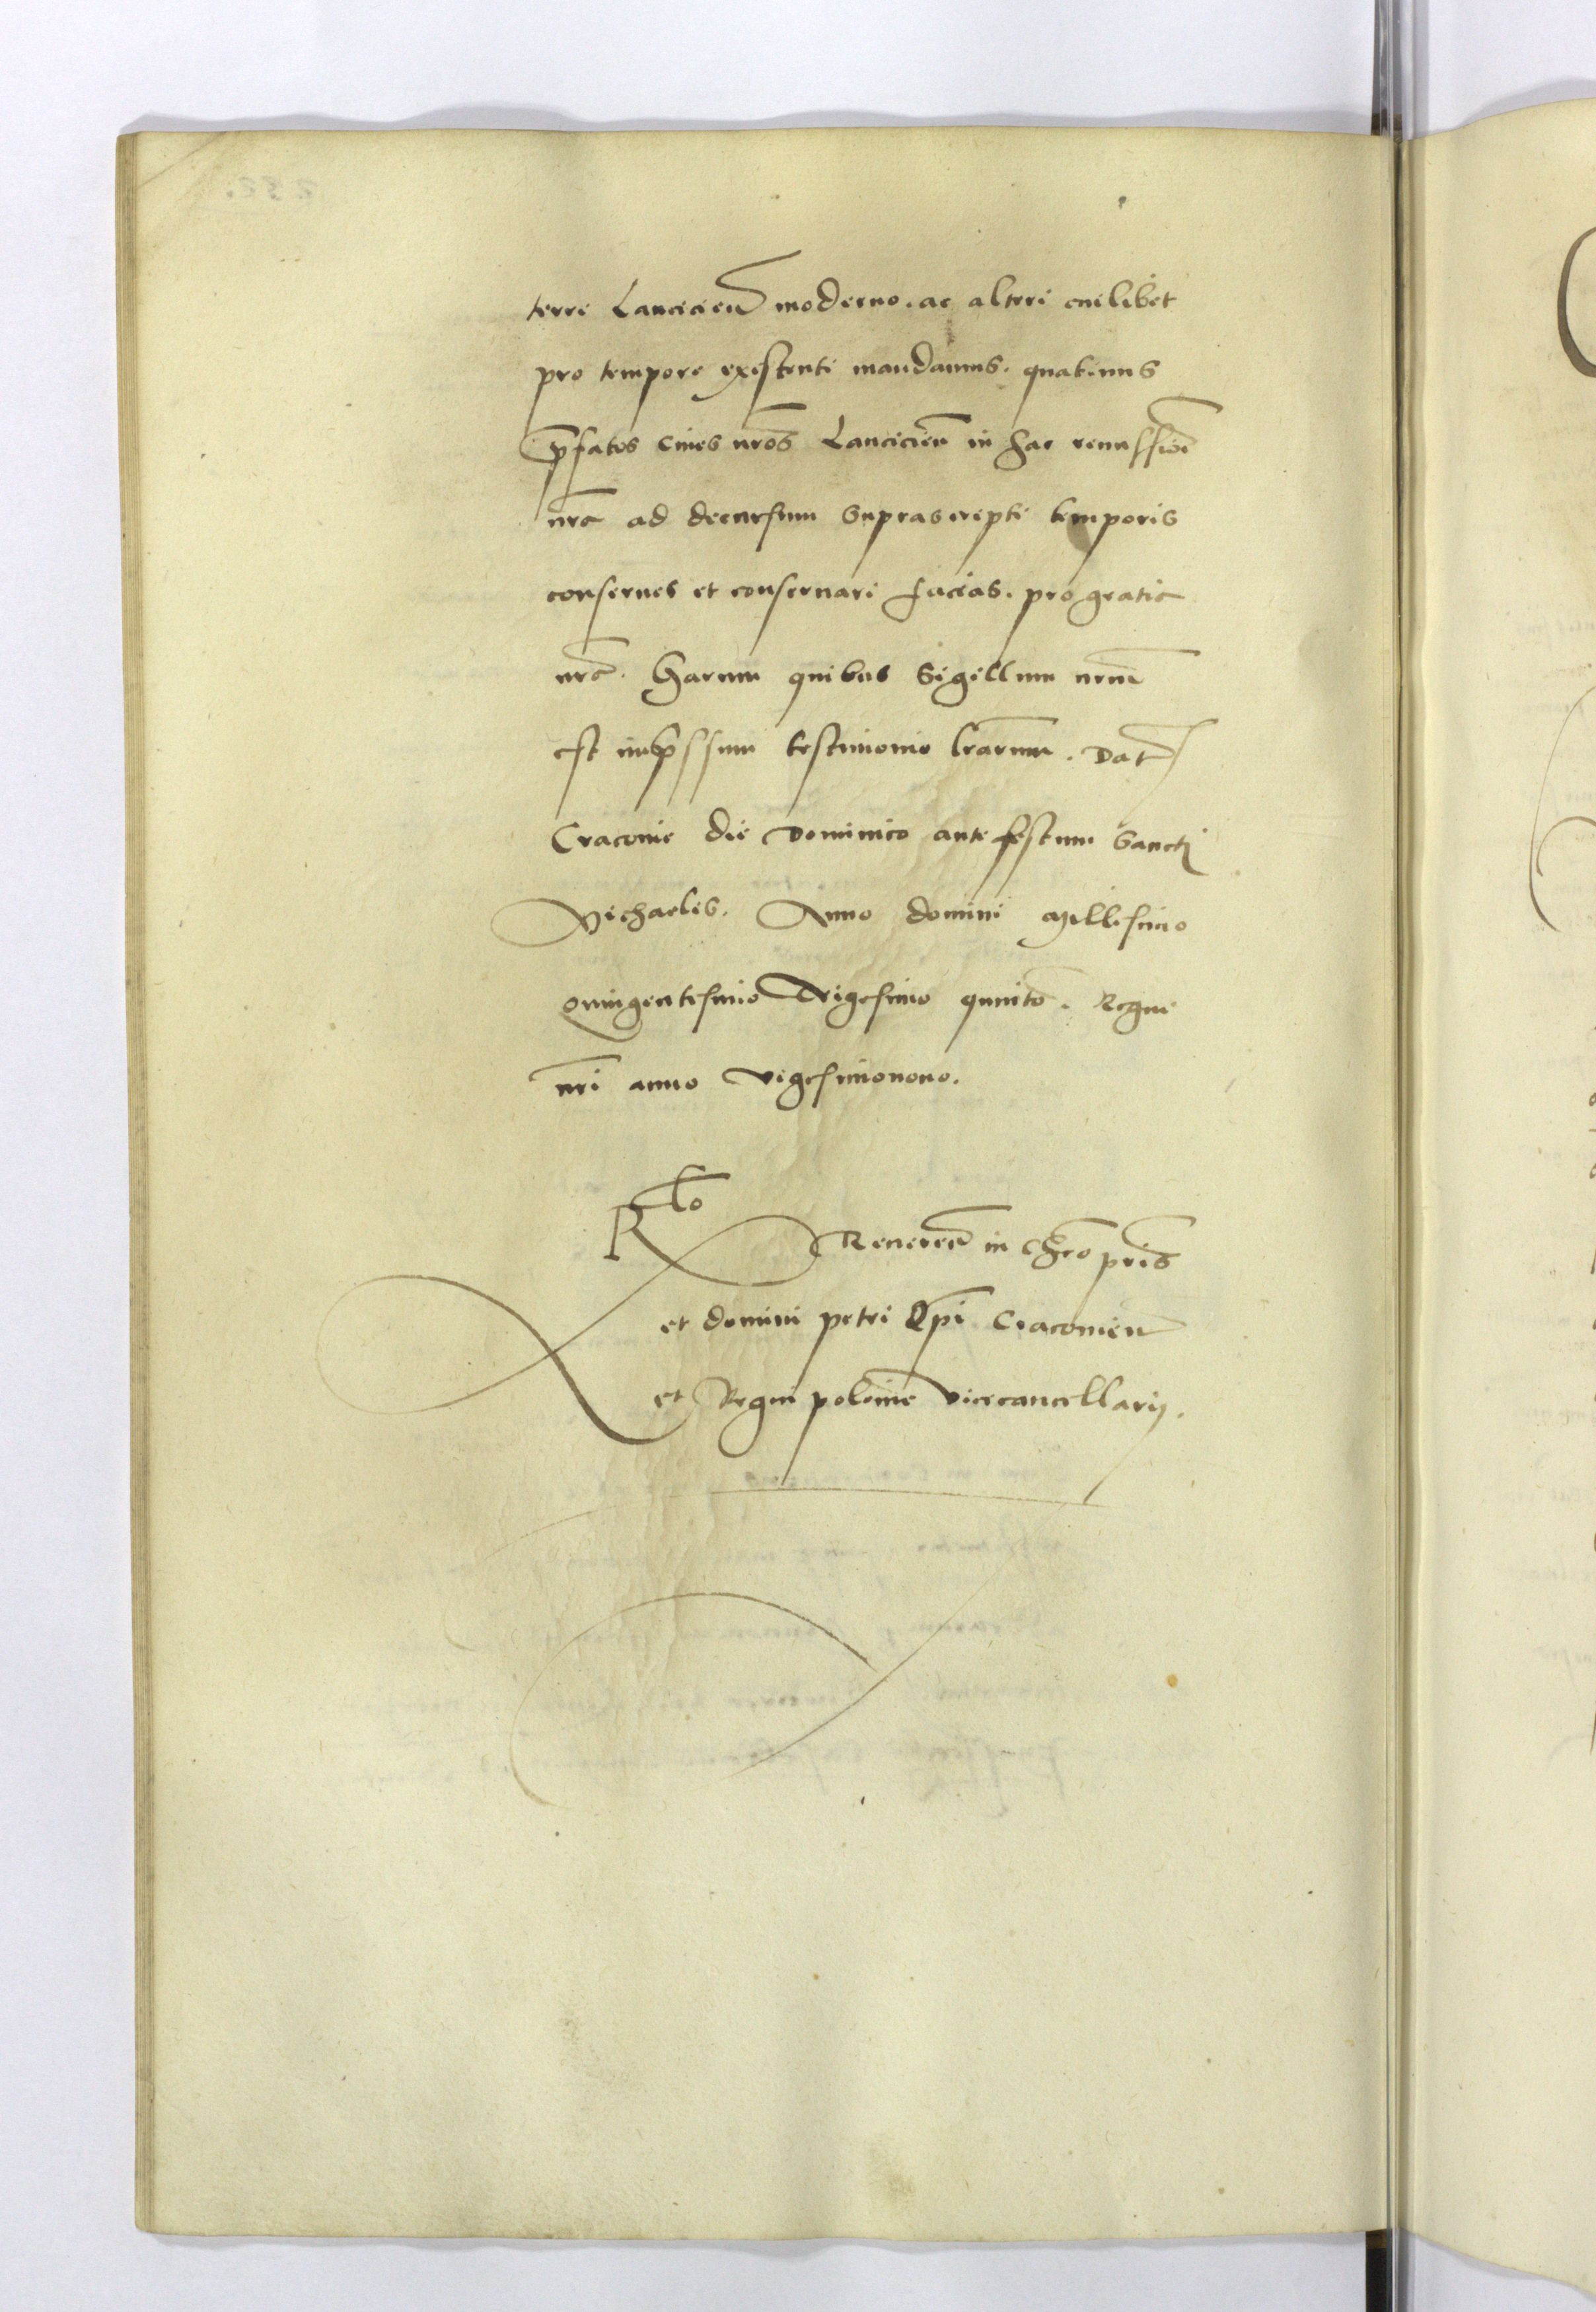 terre Lancicien̄ moderno. ac alteri cuilibet
pro tempore existenti mandamus. quatinus
p̄fatos ciues nr̄os Lancicien̄ in hac remissiōe
nr̄a ad decursum suprascripti temporis
conserues et conseruari facias. pro gratia
nr̄a. Harum quibus Sigillum nrm̄
est imp̄ssum testimonio lr̄arum. Dat̄
Cracouie die Dominico ante festum Sancti
Michaelis. Anno domini Millesimo
Quingentesimo Trigesimo quinto. Regni
nr̄i anno vigesimonono.
R̄lo
Reueren̄ in Chr̄o pr̄is
et domini petri Ep̄i Cracouien̄
et Regni polonie vicecancellarij.